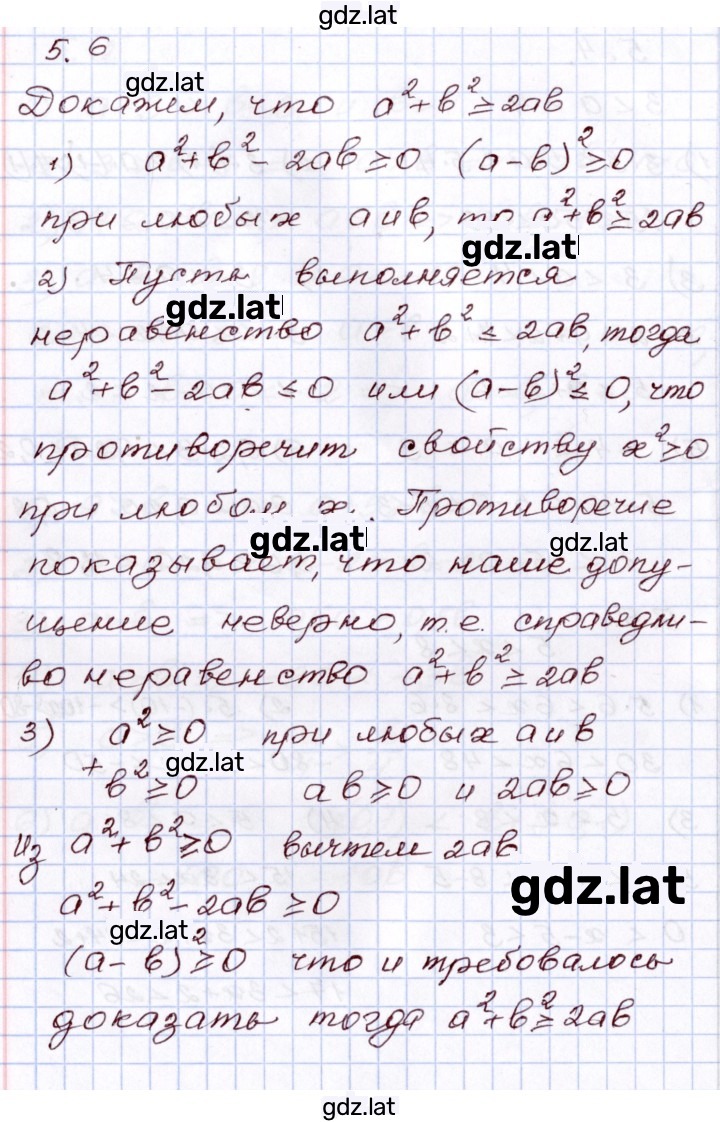 gdz.lat
5. 6
gdz.lat
Докажем, что a²+b²≥2ab
1) a²+b²-2ab≥0 (a-b)²≥0
при любых a и b, то a²+b²≥2ab
gdz.lat
2) Пусть выполняется
gdz.lat
неравенство a²+b²≤2ab, тогда
a²+b²-2ab≤0 или (a-b)²≤0, что
противоречит свойству x²≥0
при любом x. Противоречие
gdz.lat gdz.lat
показывает, что наше допу-
щение неверно, т.е. справедли-
во неравенство a²+b²≥2ab
3) a²≥0 при любых a и b
gdz.lat
+ b²≥0 ab≥0 и 2ab≥0
Из a²+b²≥0 вычтем 2ab
gdz.lat
a²+b²-2ab≥0
gdz.lat
(a-b)²≥0 что и требовалось
доказать тогда a²+b²≥2ab
gdz.lat